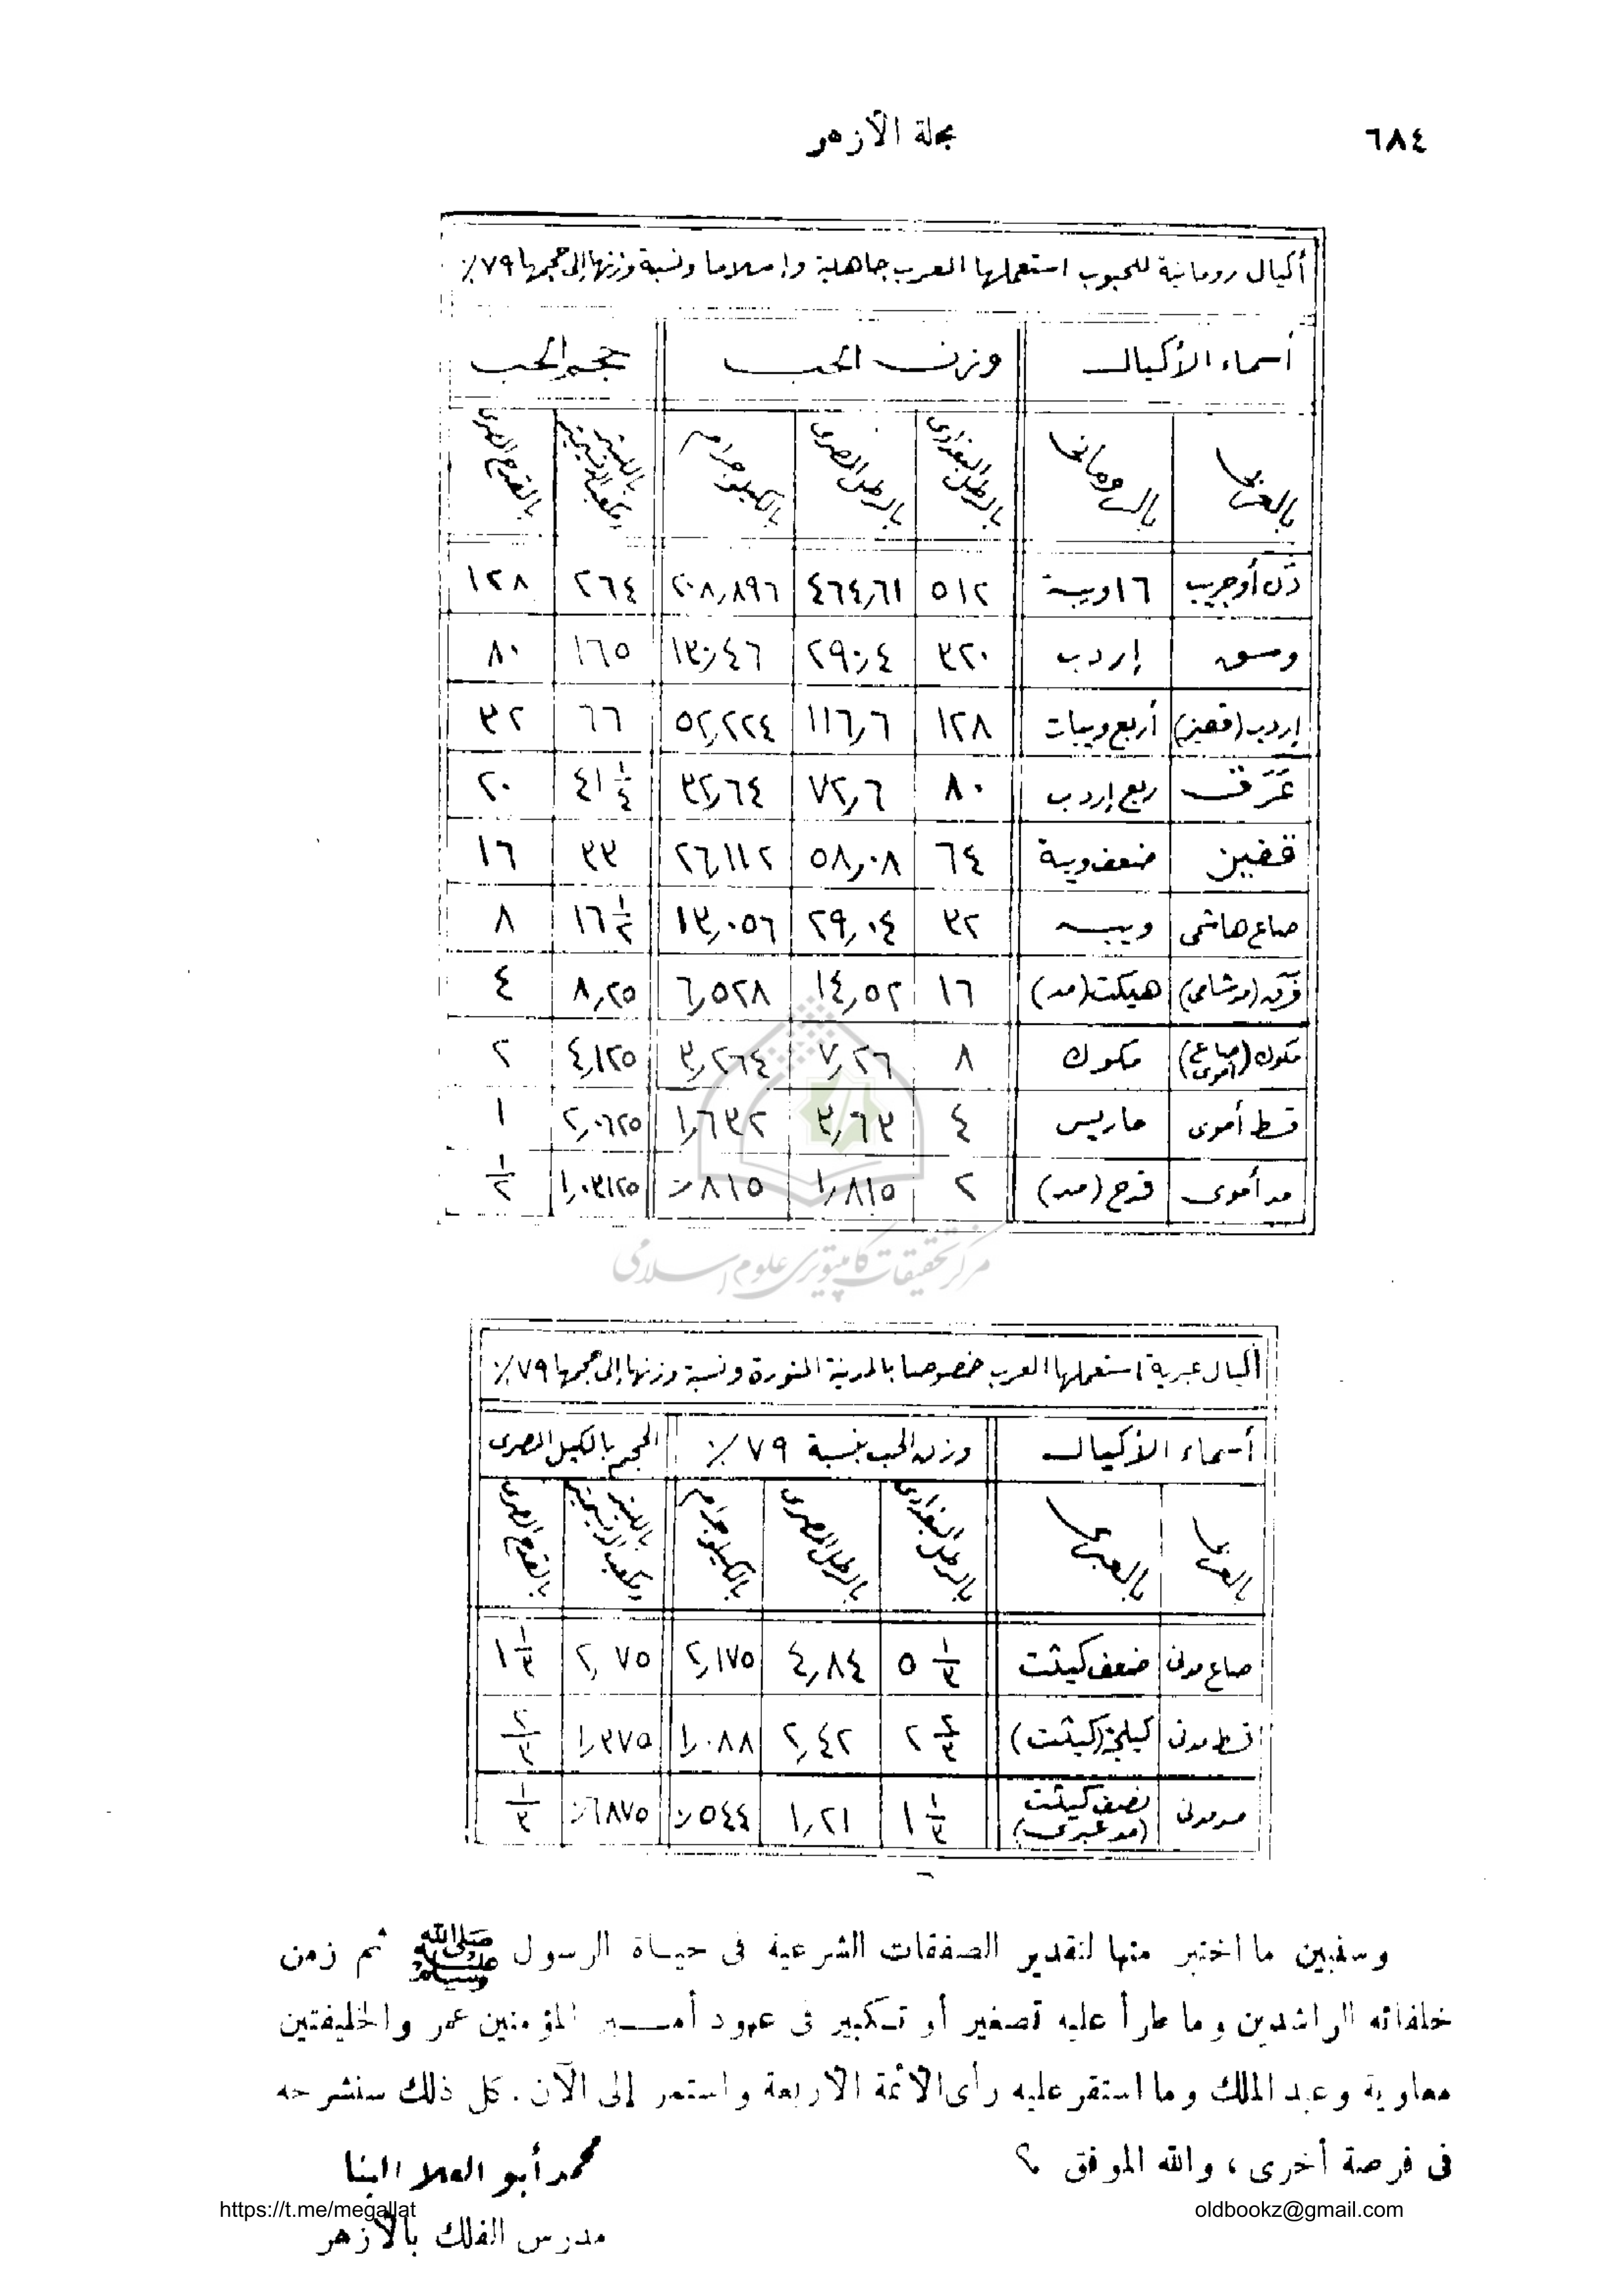 ٦٨٤
مجلة الأزهر
أكيال رومانية للحبوب استعملها العرب جاهلية وإسلاما ونسبة وزنها إلى حجمها ٧٩٪
أسماء الأكيال | وزن الحب | حجم الحب
بالعربى | بالرومانى | بالرطل البغدادى | بالرطل المصرى | بالكيلوجرام | باللتر ومكعب الديسيمتر | بالقدح المصرى
دن أو جريب | ١٦ ويبة | ٥١٢ | ٤٦٤٫٦١ | ٢٠٨٫٨٩٦ | ٢٦٤ | ١٢٨
وسق | إردب | ٣٢٠ | ٢٩٠٫٤ | ١٣٠٫٤٦ | ١٦٥ | ٨٠
إردب (قفيز) | أربع ويبات | ١٢٨ | ١١٦٫٦ | ٥٢٫٢٢٤ | ٦٦ | ٣٢
عَرَق | ربع إردب | ٨٠ | ٧٢٫٦ | ٣٢٫٦٤ | ٤١ ١/٤ | ٢٠
قفيز | ضعف ويبة | ٦٤ | ٥٨٫٠٨ | ٢٦٫١١٢ | ٣٣ | ١٦
صاع هاشمى | ويبه | ٣٢ | ٢٩٫٠٤ | ١٣٫٠٥٦ | ١٦ ١/٢ | ٨
فرق (مد شامى) | هيكت (مد) | ١٦ | ١٤٫٥٢ | ٦٫٥٢٨ | ٨٫٢٥ | ٤
مكوك (صاع أموى) | مكوك | ٨ | ٧٫٢٦ | ٣٫٢٦٤ | ٤٫١٢٥ | ٢
قسط أموى | ماريس | ٤ | ٣٫٦٣ | ١٫٦٣٢ | ٢٫٠٦٢٥ | ١
مد أموى | قدح (مد) | ٢ | ١٫٨١٥ | ٠٫٨١٥ | ١٫٠٣١٢٥ | ١/٢
مركز تحقيقات كامپيوترى علوم اسلامى
أكيال عبرية استعملها العرب خصوصا بالمدينة المنورة ونسبة وزنها إلى حجمها ٧٩٪
أسماء الأكيال | وزن الحب بنسبة ٧٩٪ | الحجم بالكيل المصرى
بالعربى | بالعبرى | بالرطل البغدادى | بالرطل المصرى | بالكيلوجرام | باللتر ومكعب الديسيمتر | بالقدح المصرى
صاع مدنى | ضعف كيثت | ٥ ١/٣ | ٤٫٨٤ | ٢٫١٧٥ | ٢٫٧٥ | ١ ١/٣
قسط مدنى | كيلجة (كيثت) | ٢ ٢/٣ | ٢٫٤٢ | ١٫٠٨٨ | ١٫٣٧٥ | ٢/٣
مد مدنى | نصف كيثت (مد عبرى) | ١ ١/٣ | ١٫٢١ | ٠٫٥٤٤ | ٠٫٦٨٧٥ | ١/٣
وسنبين ما اختبر منها لتقدير الصفقات الشرعية فى حياة الرسول ﷺ ثم زمن
خلفائه الراشدين وما طرأ عليه تصغير أو تكبير فى عهود أمير المؤمنين عمر والخليفتين
معاوية وعبد الملك وما استقر عليه رأى الأئمة الأربعة واستمر إلى الآن . كل ذلك سنشرحه
فى فرصة أخرى ، والله الموفق ؟
محمد أبو العلا البنا
https://t.me/megallat
oldbookz@gmail.com
مدرس الفلك بالأزهر